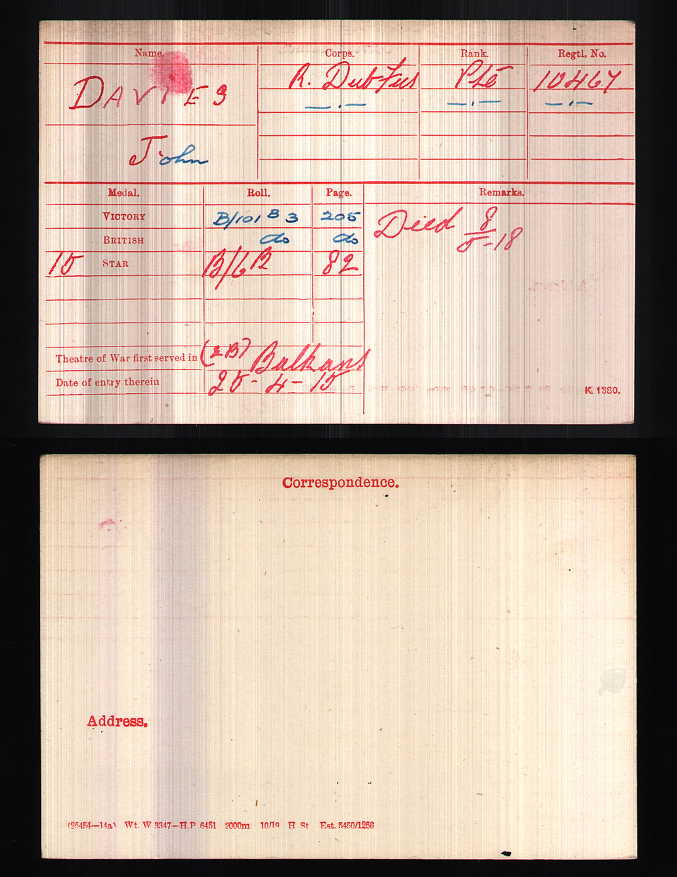 Name. Corps. Rank. Regtl. No.
DAVIES R. Dub Fus Pte 10467
—.— —.— —.—
John
Medal. Roll. Page. Remarks.
VICTORY B/101 B 3 205 Died 8/8-18
BRITISH do do
15 STAR B/6B 82
Theatre of War first served in (2B) Balkans
Date of entry therein 25-4-15
K. 1380.
Correspondence.
Address.
(36484—14a) Wt. W 3347—H.P. 6451 2000m 10/19 H. St Est. 5450/1256